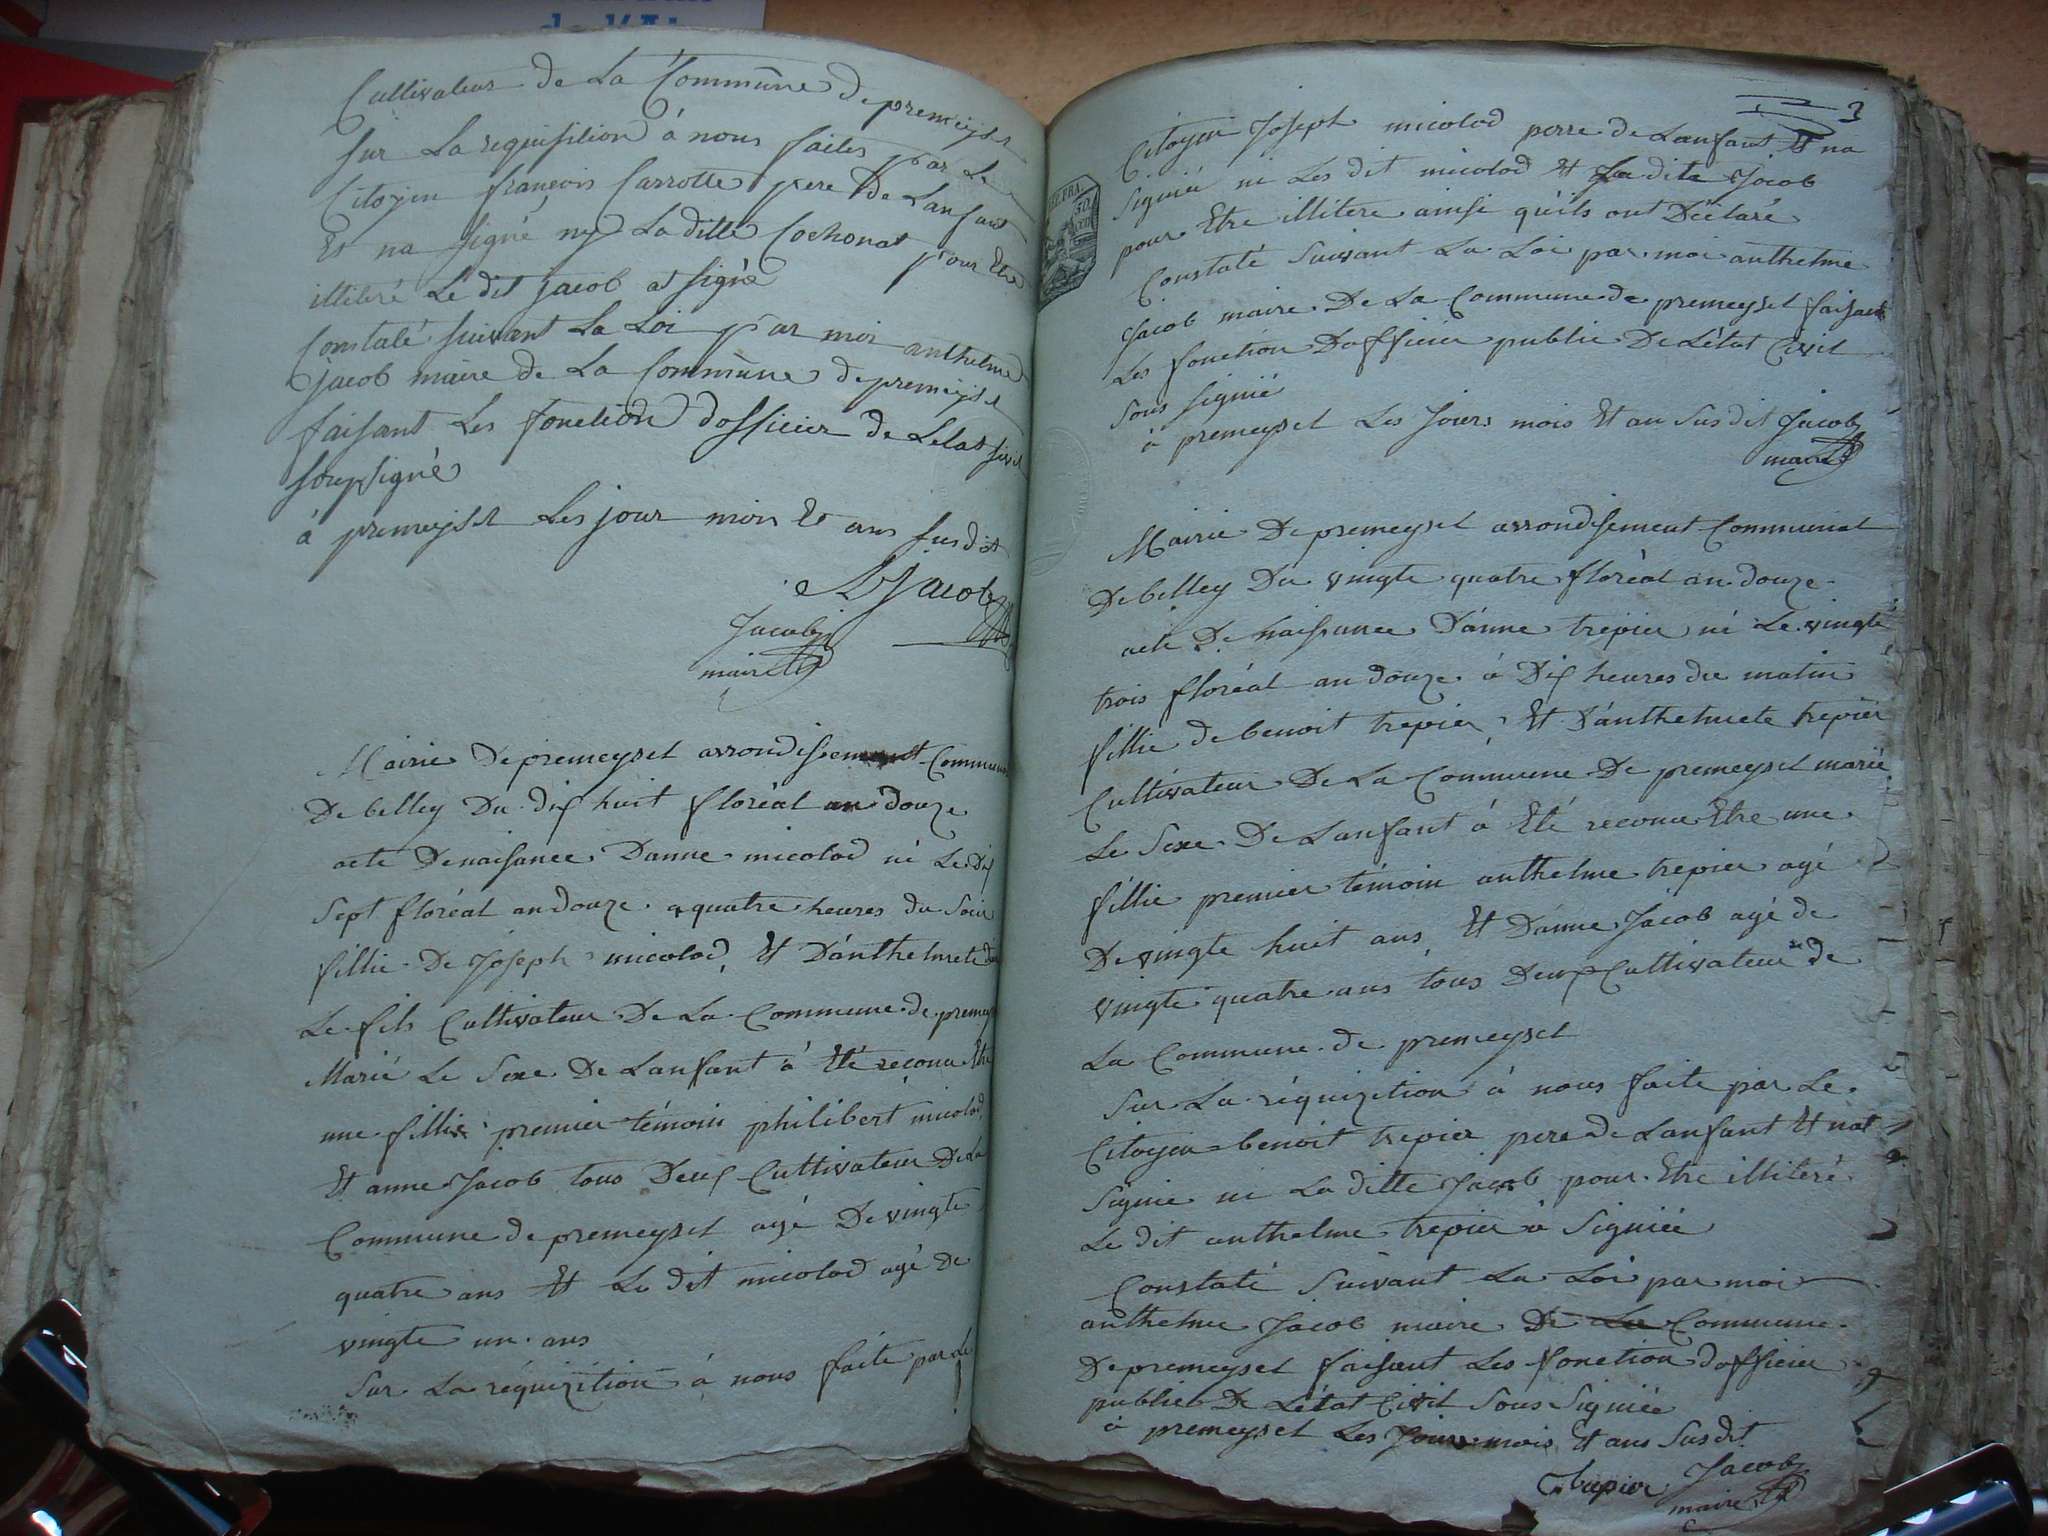 Cultivateur de La Commune de premeysel
sur La requisition à nous faites par Le
Citoyen françois Carrotte pere de Lanfant
Et na signé ny La ditte Cochonat pour Etre
illiteré Le dit jacob at signé
Constaté suivant La Loi par moi anthelme
Jacob maire de La Commune de premeysel
faisant Les fonction dofficier de Letat sivil
soupsigné
à premeysel Les jour mois Et ans susdit
Jacob
Jacob
maire
Mairie De premeysel arrondissement Commun
De belley Du dix huit floréal an douze
acte De naisance Danne micolod né Le Dix
Sept floréal an douze a quatre heures du Soir
fillie De Joseph micolod Et D'anthelmete
Le fils Cultivateur De La Commune de premey
Marié Le Sexe De Lanfant à Eté reconu Etre
une fillie premier témoin philibert micolod
Et anne Jacob tous Deux Cultivateur De La
Commune de premeysel agé De vingte
quatre ans Et Le dit micolod agé de
vingte un ans
Sur La réquizition à nous faite par Le
3
Citoyen Joseph micolod perre de Lanfant Et na
Signié ni Les dit micolod Et La dite Jacob
pour Etre illitere ainsi quils ont Déclaré
Constaté Suivant La Loi par moi anthelme
Jacob maire De La Commune de premeysel faisant
Les fonction Dofficier public De Létat Civil
Sous signié
à premeysel Les Jours mois Et an Susdit Jacob
maire
Mairie De premeysel arrondisement Communal
De belley Du vingte quatre floréal an douze
acte De naissance D'anne trepier né Le vingte
trois floréal an douze à Dix heures du matin
fillie de benoit trepier Et D'anthelmete trepier
Cultivateur De La Commune De premeysel marié
Le Sexe De Lanfant à Eté reconu Etre une
fillie premier témoin anthelme trepier agé
De vingte huit ans Et D'anne Jacob agé de
vingte quatre ans tous Deux Cultivateur de
La Commune de premeysel
Sur La réquizition à nous faite par Le
Citoyen benoit trepier pere de Lanfant Et nat
Signie ni La ditte Jacob pour Etre illiteré
Le dit anthelme trepier à Signiée
Constaté Suivant La Loi par moi
anthelme Jacob maire De La Commune
De premeysel faisant Les fonction dofficier
public De Létat Civil Sous Signiée
à premeysel Les Jours mois Et ans Susdit
trepier Jacob
maire